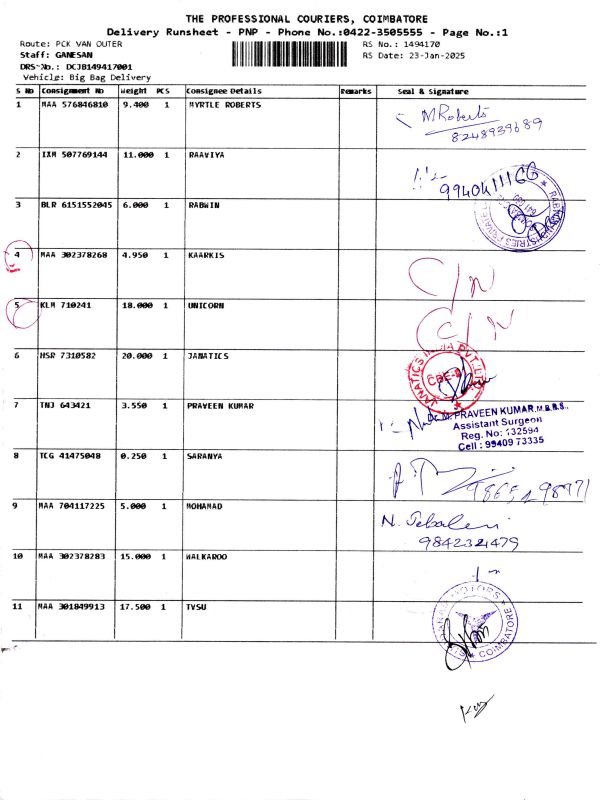 THE PROFESSIONAL COURIERS, COIMBATORE
Delivery Runsheet - PNP - Phone No.:0422-3505555 - Page No.:1
Route: PCK VAN OUTER RS No.: 1494170
Staff: GANESAN RS Date: 23-Jan-2025
DRS No.: DCJB149417001
Vehicle: Big Bag Delivery
S No Consignment No Weight PCS Consignee Details Remarks Seal & Signature
1 MAA 576846810 9.400 1 MYRTLE ROBERTS
M Roberts
8248939689
2 IXM 507769144 11.000 1 RAAVIYA
9940411166
3 BLR 6151552045 6.000 1 RABWIN
4 MAA 302378268 4.950 1 KAARKIS C/N
5 KLM 710241 18.000 1 UNICORN C/N
6 HSR 7310582 20.000 1 JANATICS
JANATICS INDIA PVT. LTD
CBE-
7 TNJ 643421 3.550 1 PRAVEEN KUMAR
Dr. M. PRAVEEN KUMAR, M.B.B.S.,
Assistant Surgeon
Reg. No: 132594
Cell : 99409 73335
8 TCG 41475048 0.250 1 SARANYA
9 MAA 704117225 5.000 1 MOHAMAD
9842321479
10 MAA 302378283 15.000 1 WALKAROO
11 MAA 301849913 17.500 1 TVSU
MOTORS
COIMBATORE